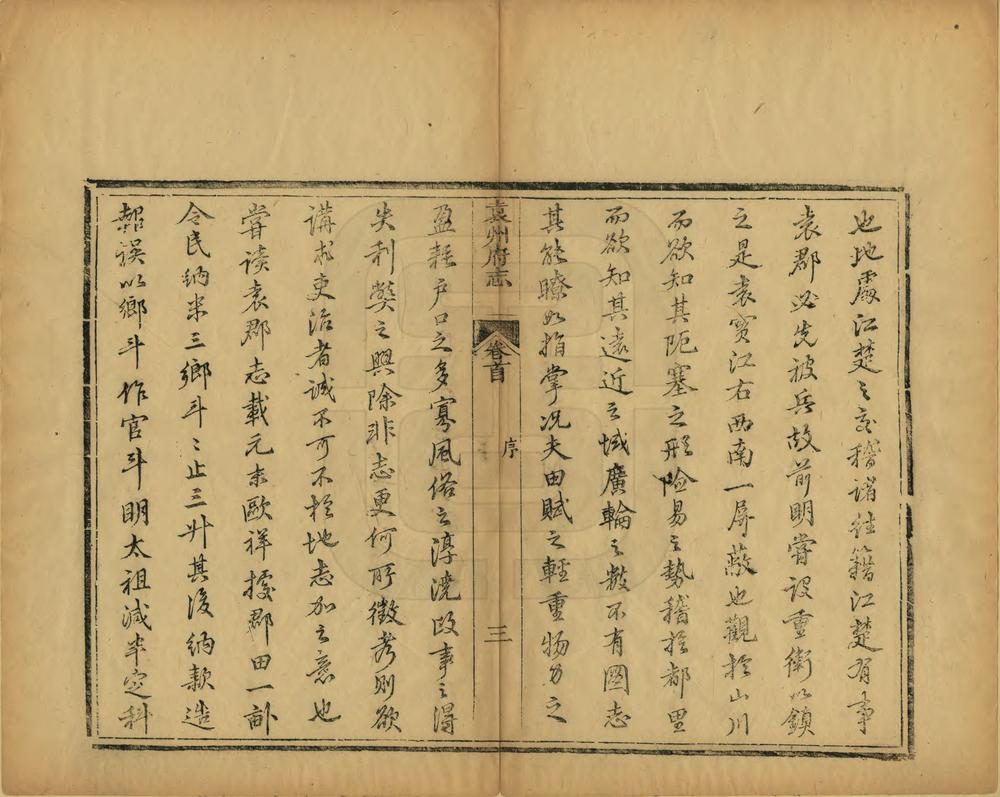 也地處江楚之交稽諸往籍江楚有事
袁郡必先被兵故前明嘗設重衛以鎮
之是袁實江右西南一屏蔽也觀於山川
而欲知其阨塞之形險易之勢稽於都里
而欲知其遠近之域廣輪之數不有國志
其能瞭如指掌况夫田賦之輕重物力之
袁州府志
卷首
序
三
盈耗户口之多寡風俗之淳澆政事之得
失利獘之興除非志更何所徵考則欲
講求吏治者誠不可不於地志加之意也
嘗讀袁郡志載元末歐祥據郡田一畝
令民納米三鄉斗〻止三升其後納款造
報誤以鄉斗作官斗明太祖減半定科